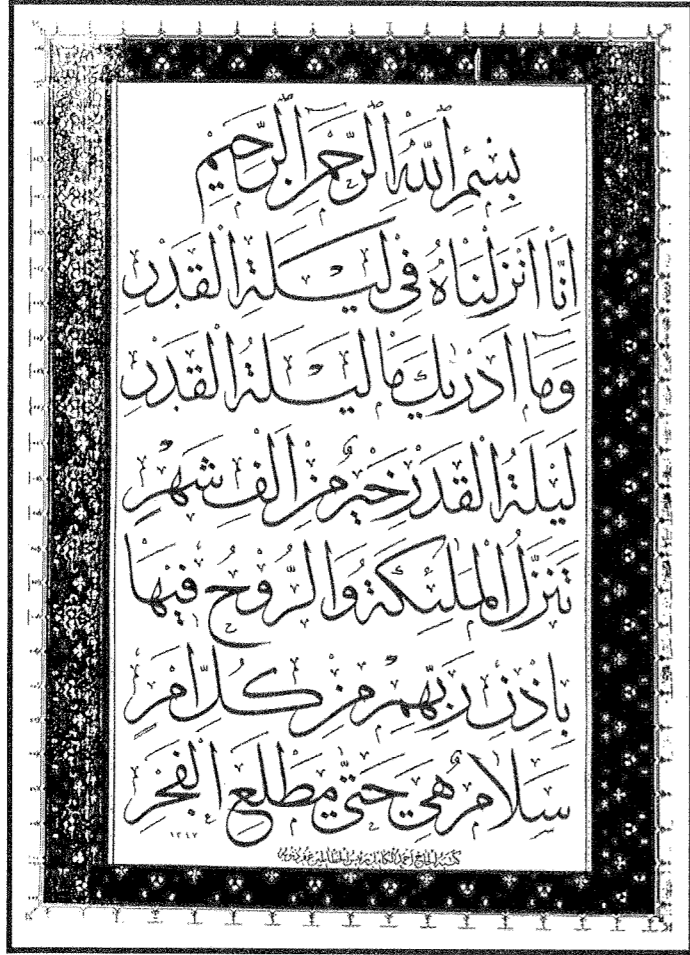 بِسْمِ اللّٰهِ الرَّحْمٰنِ الرَّحِيمِ
اِنَّا اَنْزَلْنَاهُ فِى لَيْلَةِ الْقَدْرِ
وَمَا اَدْرٰيكَ مَا لَيْلَةُ الْقَدْرِ
لَيْلَةُ الْقَدْرِ خَيْرٌ مِنْ اَلْفِ شَهْرٍ
تَنَزَّلُ الْمَلٰئِكَةُ وَالرُّوحُ فِيهَا
بِاِذْنِ رَبِّهِمْ مِنْ كُلِّ اَمْرٍ
سَلَامٌ هِىَ حَتّٰى مَطْلَعِ الْفَجْرِ
١٣٤٧
كتبه الحاج احمد الكامل